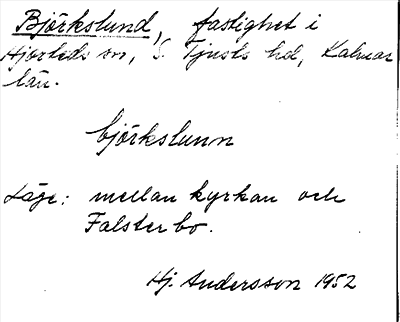 Björkslund, fastighet i
Hjorteds sn, S. Tjusts hd, Kalmar
län.
björkslunn
Läge: mellan kyrkan och
Falsterbo.
Hj. Andersson 1952